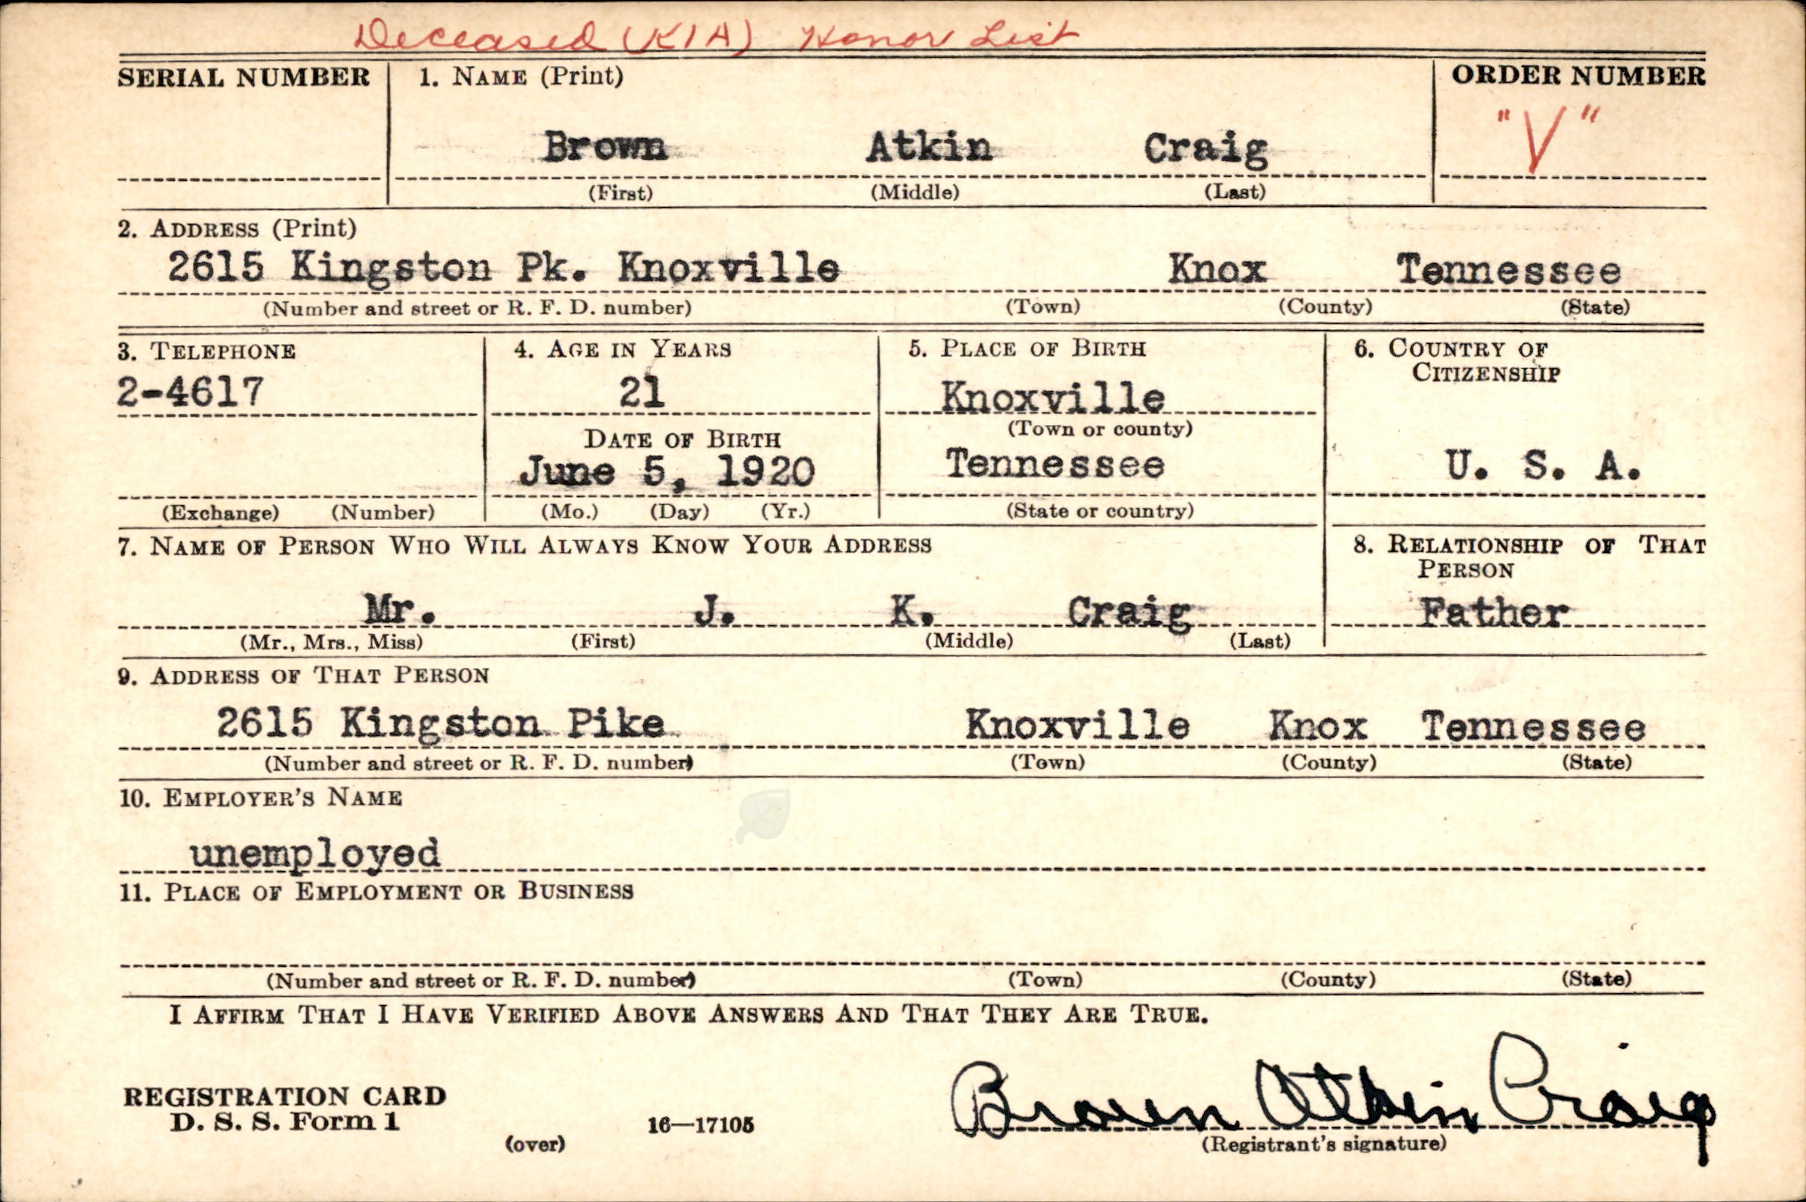 Deceased (KIA) Honor List
SERIAL NUMBER 1. NAME (Print) ORDER NUMBER
Brown Atkin Craig "V"
(First) (Middle) (Last)
2. ADDRESS (Print)
2615 Kingston Pk. Knoxville Knox Tennessee
(Number and street or R. F. D. number) (Town) (County) (State)
3. TELEPHONE 4. AGE IN YEARS 5. PLACE OF BIRTH 6. COUNTRY OF
CITIZENSHIP
2-4617 21 Knoxville
(Town or county)
DATE OF BIRTH
June 5, 1920 Tennessee U. S. A.
(Exchange) (Number) (Mo.) (Day) (Yr.) (State or country)
7. NAME OF PERSON WHO WILL ALWAYS KNOW YOUR ADDRESS 8. RELATIONSHIP OF THAT
PERSON
Mr. J. K. Craig Father
(Mr., Mrs., Miss) (First) (Middle) (Last)
9. ADDRESS OF THAT PERSON
2615 Kingston Pike Knoxville Knox Tennessee
(Number and street or R. F. D. number) (Town) (County) (State)
10. EMPLOYER'S NAME
unemployed
11. PLACE OF EMPLOYMENT OR BUSINESS
(Number and street or R. F. D. number) (Town) (County) (State)
I AFFIRM THAT I HAVE VERIFIED ABOVE ANSWERS AND THAT THEY ARE TRUE.
REGISTRATION CARD
D. S. S. Form 1 16—17105 Brown Atkin Craig
(over) (Registrant's signature)